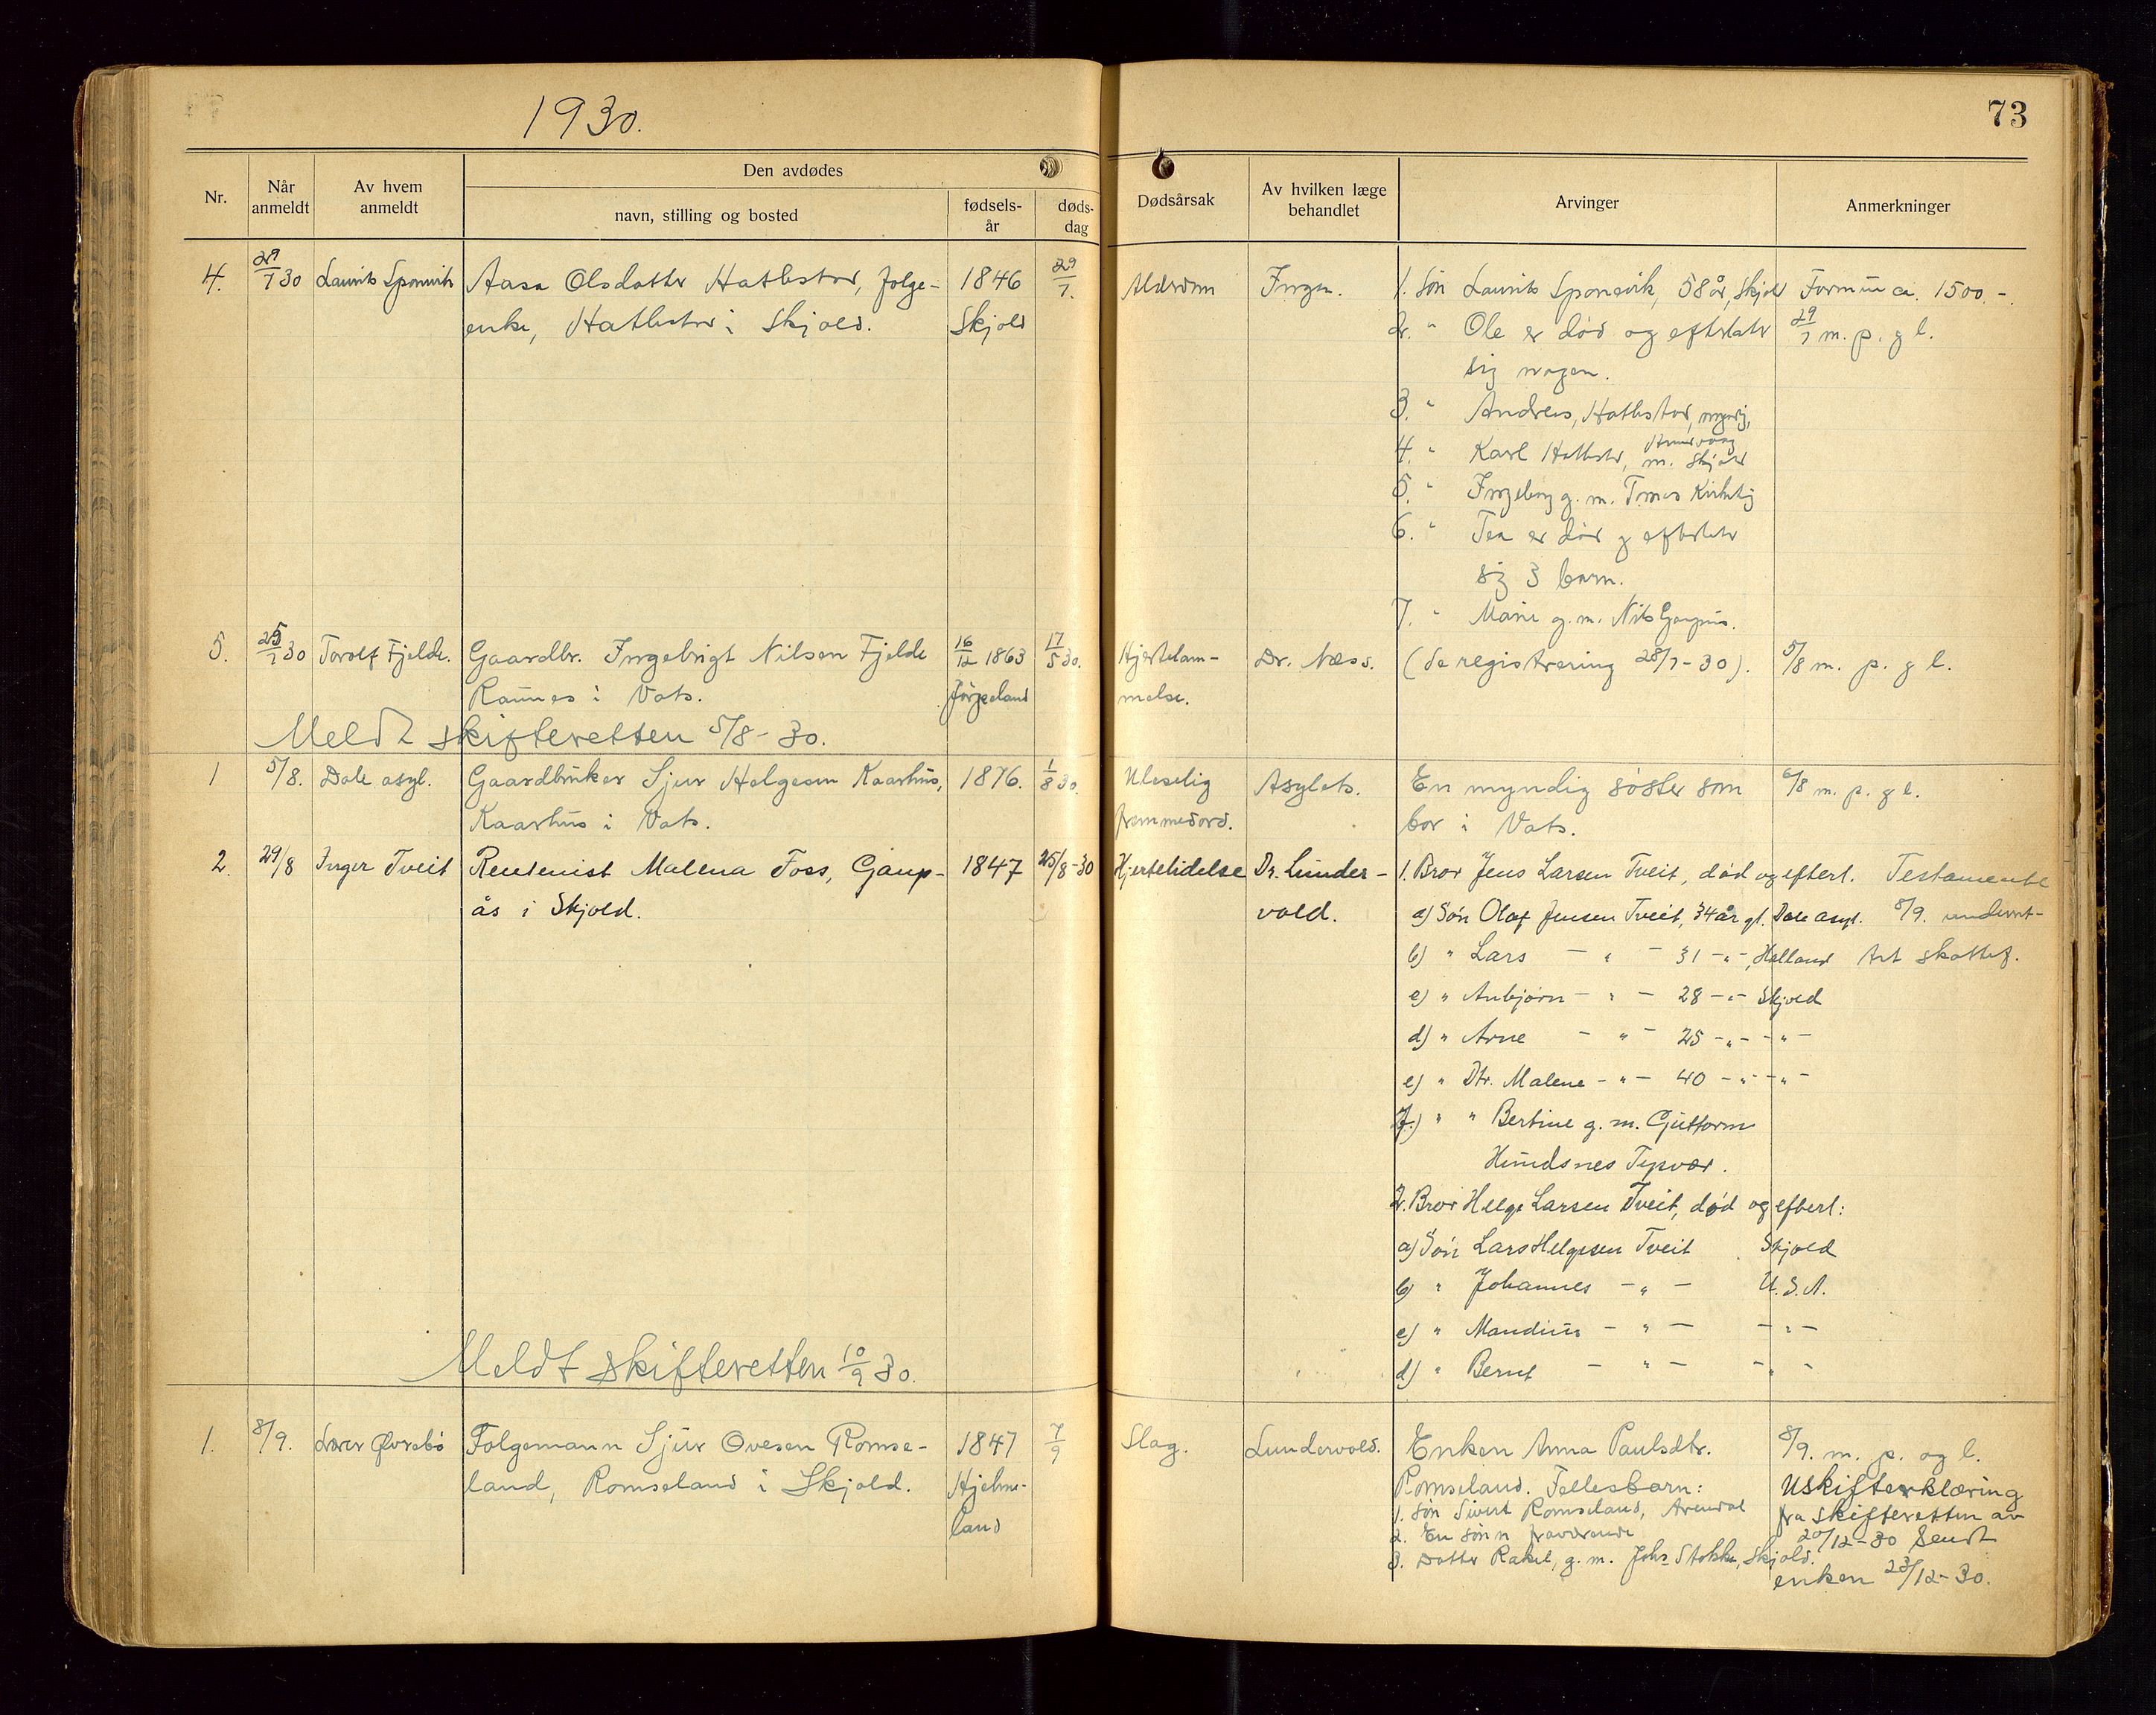 1930.
73
Nr.
Når anmeldt
Av hvem anmeldt
Den avdødes
navn, stilling og bosted
fødsels-år
døds-dag
Dødsårsak
Av hvilken læge behandlet
Arvinger
Anmerkninger
4. 29/7 30 Laurits Sponevik Aasa Olsdatter Hatlestad, folge- 1846 29/7. Alderdom Ingen. 1. Søn Laurits Sponevik, 58 år, Skjold Formue ca. 1500.-.
enke, Hatlestad i Skjold. Skjold 2. " Ole er død og efterlater 29/7 m. p. g l.
sig nogen.
3. " Andreas, Hatlestad, myndig,
4. " Karl Hatlestad, m. Skjold
5. " Ingeborg g. m. Tomas
6. " Tea er død g efterlater
sig 3 barn.
7. " Marie g. m. Nils
5. 25/7 30 Torolf Fjelde. Gaardbr. Ingebrigt Nilsen Fjelde 16/12 1863 17/5 30. Hjertelam- Dr. Næss. (Se registrering 28/7-30). 5/8 m. p. g l.
Raunes i Vats. Jørpeland melse.
Meldt skifteretten 5/8-30.
1 5/8. Dale asyl. Gaardbruker Sjur Helgesen Kaarhus, 1876. 1/8 30. Uleselig Asylets. En myndig søster som 6/8 m. p. g l.
Kaarhus i Vats. fremmedord. bor i Vats.
2. 29/8 Inger Tveit Rentenist Malena Foss, Gaup- 1847 25/8-30 Hjertelidelse Dr. Lunder- 1. Bror Jens Larsen Tveit, død og efterl. Testamente
ås i Skjold. vold. a) Søn Olaf Jensen Tveit, 34 år gl. Dale asyl. 8/9. underret-
b) " Lars - " - 31 -"-, Halland tet skattef.
c) " Anbjørn - " - 28 -"- Skjold
d) " Arne - " - 25 -"- -"-
e) " Dtr. Malene -"- 40 -"- -"-
f.) " " Bertine g. m. Guttorm
Hundsnes Tysvær.
2. Bror Helge Larsen Tveit, død og efterl:
a) Søn Lars Helgesen Tveit Skjold
b) " Johannes -"- U.S.A.
c) " Mandius -"- -"-
d) " Bernt -"- -"-
Meldt skifteretten 10/9 30.
1. 8/9. Lærer Øvrebø Folgemann Sjur Ovesen Romse- 1847 7/9 Slag. Lundervold. Enken Anna Paulsdtr. 8/9. m. p. og l.
land, Romseland i Skjold. Hjelme- Romseland. Fellesbarn: Uskifterklæring
land 1. Søn Sivert Romseland, Arendal fra skifteretten av
2. En sønn fraværende 20/12-30 Sendt
3. Datter Rakel, g. m. Johs Stokke, Skjold. enken 23/12-30.